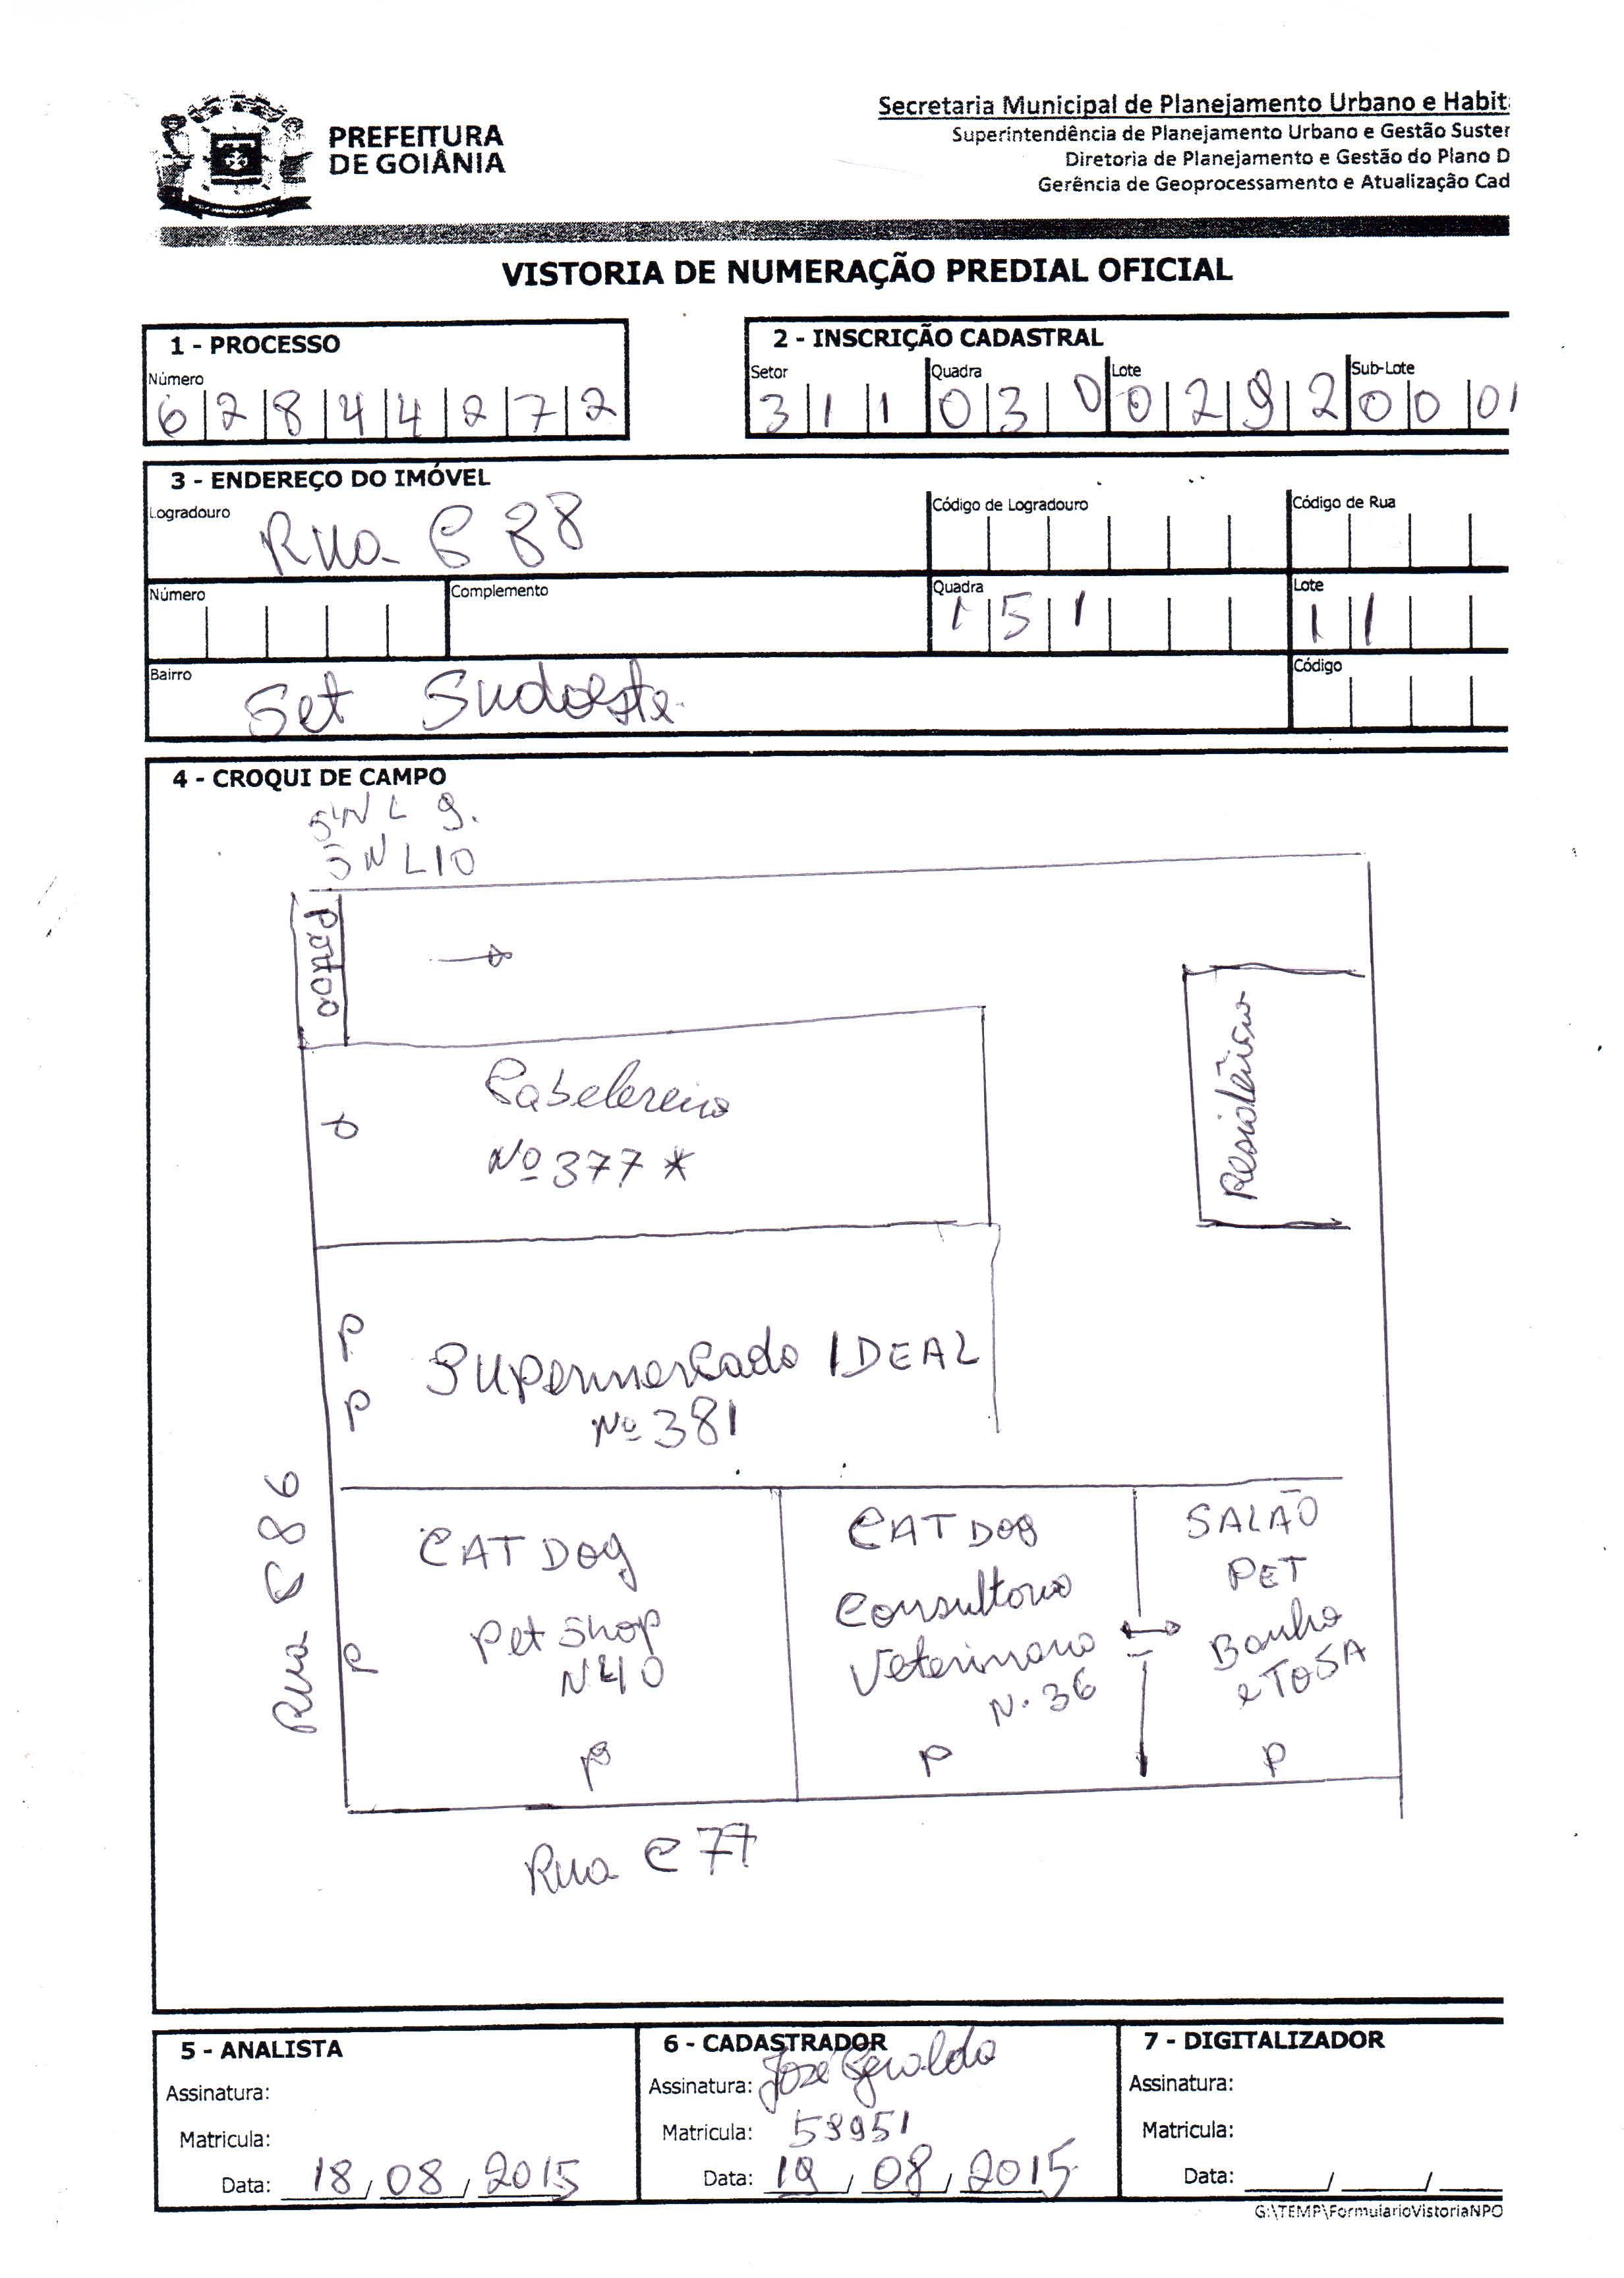 PREFEITURA
DE GOIÂNIA
Secretaria Municipal de Planejamento Urbano e Habit
Superintendência de Planejamento Urbano e Gestão Suster
Diretoria de Planejamento e Gestão do Plano D
Gerência de Geoprocessamento e Atualização Cad
VISTORIA DE NUMERAÇÃO PREDIAL OFICIAL
1 - PROCESSO
Número
6 2 8 4 4 2 7 2
2 - INSCRIÇÃO CADASTRAL
Setor Quadra Lote Sub-Lote
3 1 1 0 3 0 0 2 9 2 0 0 0 1
3 - ENDEREÇO DO IMÓVEL
Logradouro
Rua C 88
Código de Logradouro
Código de Rua
Número
Complemento
Quadra
1 5 1
Lote
1 1
Bairro
Set Sudoeste
Código
4 - CROQUI DE CAMPO
S/N L 9.
SN L10
Portão
Residência
Cabelereiro
Nº 377 *
P
P
Supermercado IDEAL
Nº 381
Rua C 86
CAT DOG
Pet Shop
N 40
P
P
CAT DOG
Consultorio
Veterinario
N. 36
P
SALÃO
PET
Banho
e TOSA
P
Rua C 77
5 - ANALISTA
Assinatura:
Matricula:
Data: 18/08/2015
6 - CADASTRADOR
Assinatura: José Geraldo
Matricula: 58951
Data: 19/08/2015
7 - DIGITALIZADOR
Assinatura:
Matricula:
Data: / /
G:\TEMP\FormularioVistoriaNPO